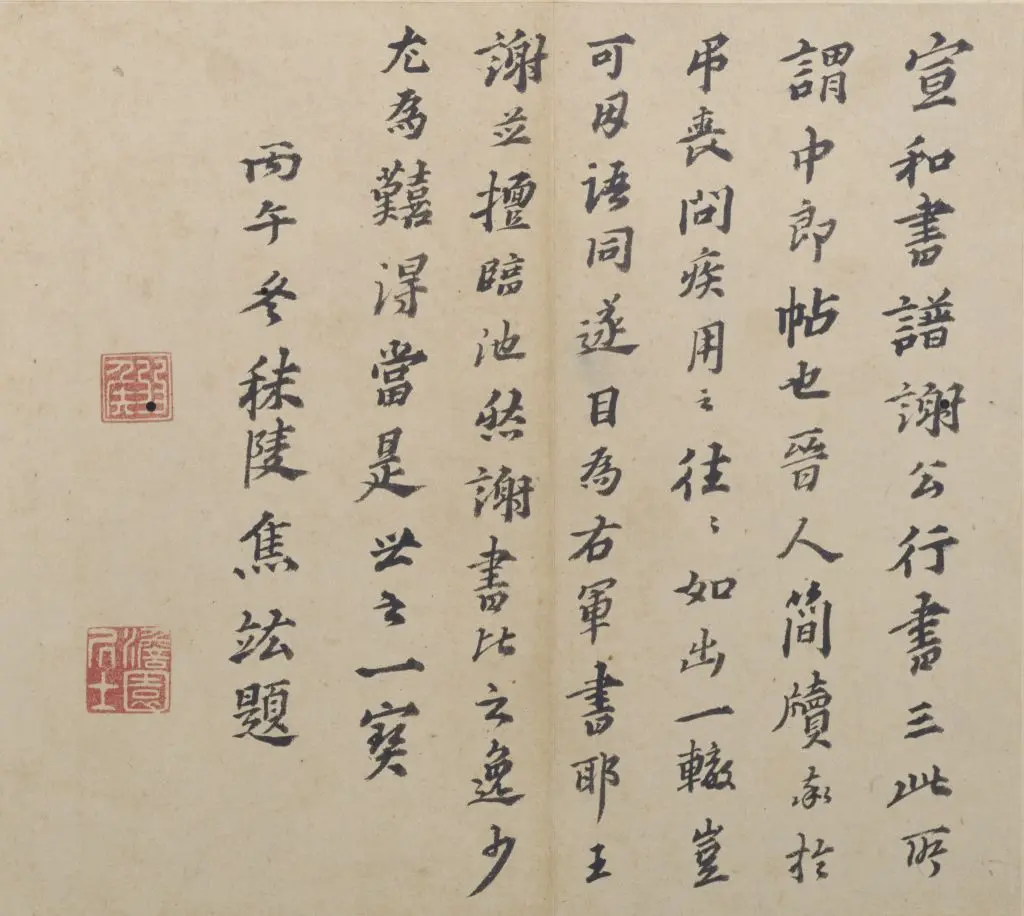 宣和書譜謝公行書三此所
謂中郎帖也晉人簡牘多於
弔喪問疾用之往〻如出一轍豈
可因語同遂目為右軍書耶王
謝並擅臨池然謝書比之逸少
尤為難得當是世之一寶
丙午冬秣陵焦竑題
澹園居士